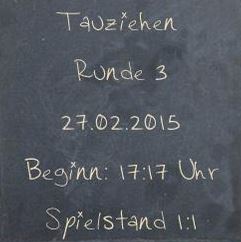 Tauziehen
Runde 3
27.02.2015
Beginn: 17:17 Uhr
Spielstand 1:1